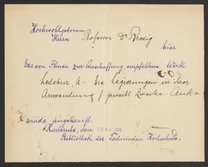 Hochwohlgeboren
Herrn Professor Dr.
hier
Das von Ihnen zur Anschaffung empfohlene Werk
Ledebur A. Die Legierungen in ihrer
Anwendung f. gewerbl. Zwecke
wurde angekauft.
Karlsruhe, den
Bibliothek der Technischen Hochschule.